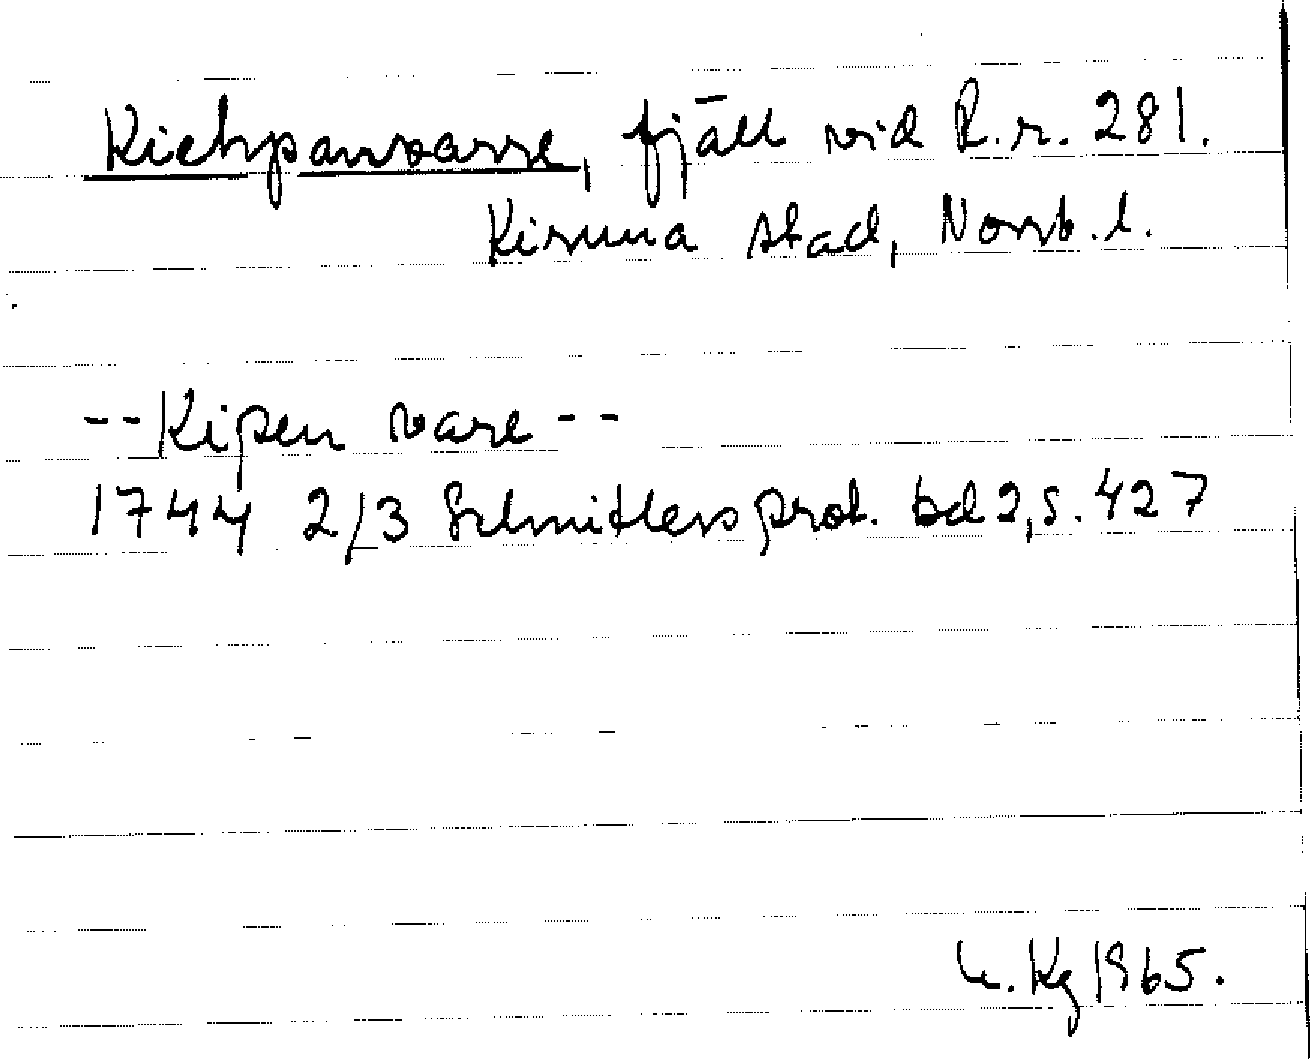 Kiehpanvarre, fjäll vid R.r. 281.
Kiruna stad, Norrb. l.
--Kipen vare--
1744 2/3 Schnitlers prot. bd 2, s. 427
U. Kg 1965.